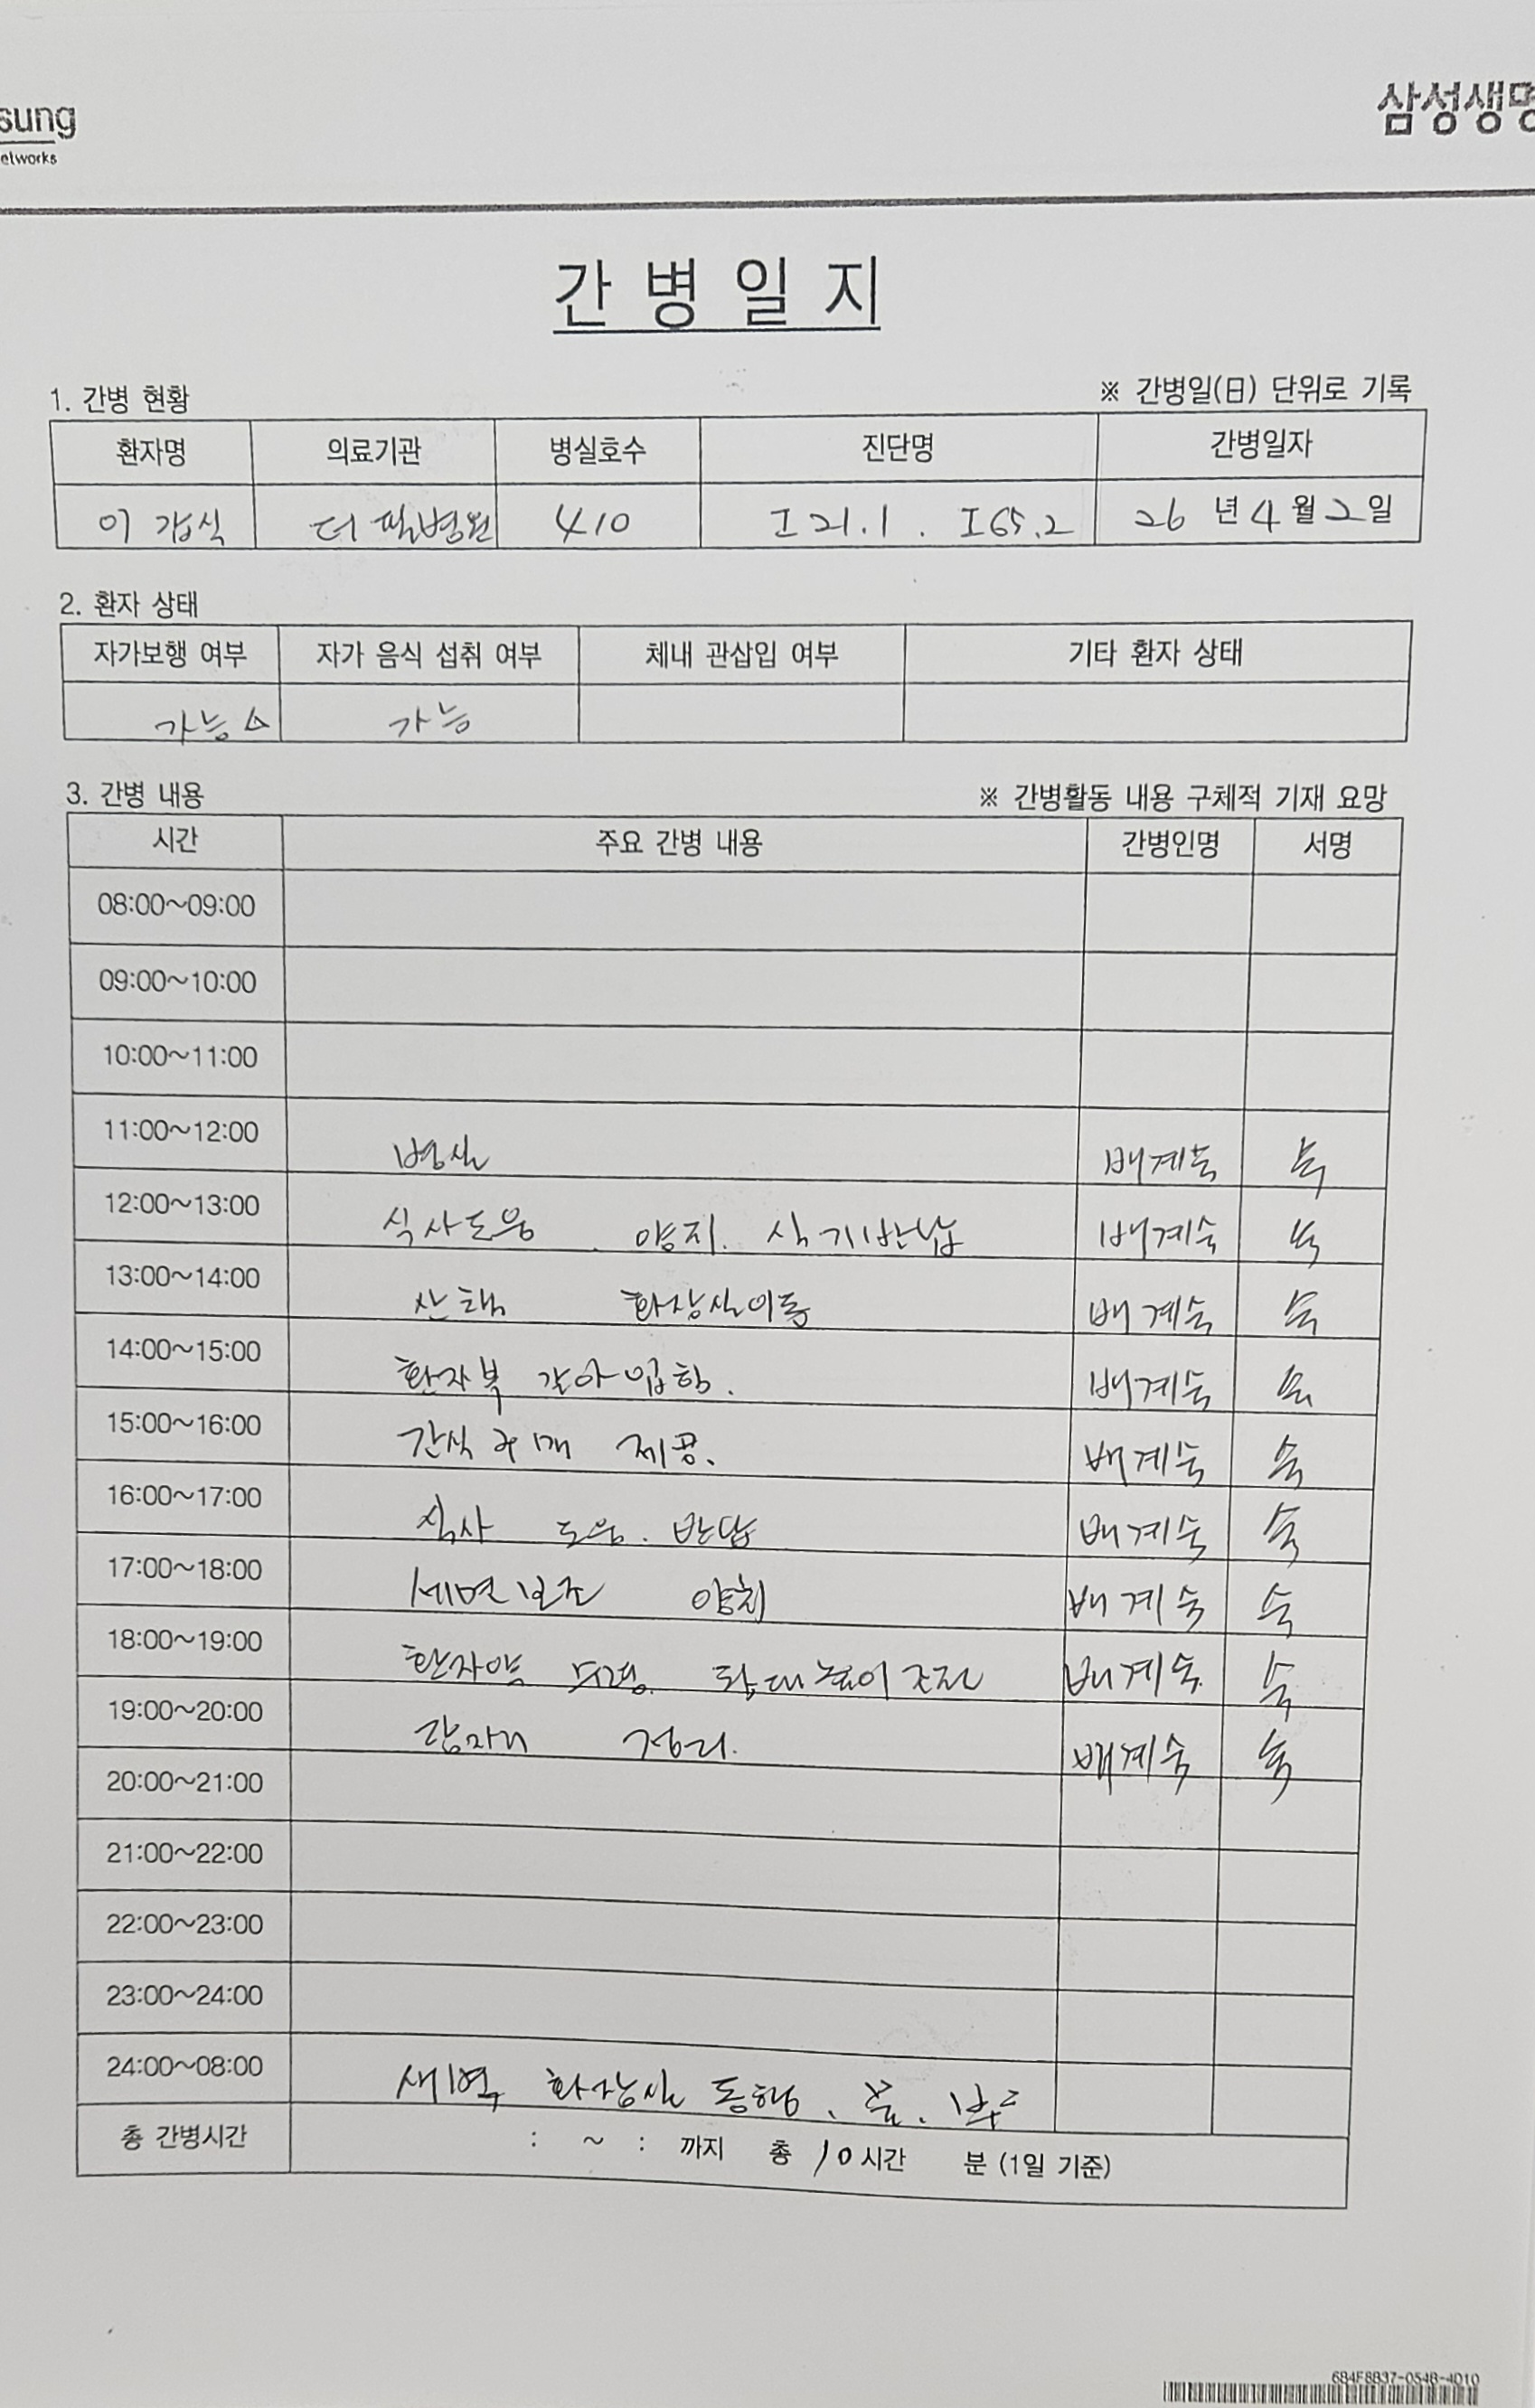 sung
etworks
삼성생명
간 병 일 지
1. 간병 현황
※ 간병일(日) 단위로 기록
환자명 의료기관 병실호수 진단명 간병일자
이 갑식 더 필병원 410 I 21.1 . I 65.2 26 년 4 월 2 일
2. 환자 상태
자가보행 여부 자가 음식 섭취 여부 체내 관삽입 여부 기타 환자 상태
가능 △ 가능
3. 간병 내용
※ 간병활동 내용 구체적 기재 요망
시간 주요 간병 내용 간병인명 서명
08:00~09:00
09:00~10:00
10:00~11:00
11:00~12:00 병실 배계숙 숙
12:00~13:00 식사도움 . 양치. 식기반납 배계숙 숙
13:00~14:00 산책 화장실이동 배계숙 숙
14:00~15:00 환자복 갈아입힘. 배계숙 숙
15:00~16:00 간식 구매 제공. 배계숙 숙
16:00~17:00 식사 도움. 반납 배계숙 숙
17:00~18:00 세면보조 양치 배계숙 숙
18:00~19:00 환자약 높이조절 배계숙 숙
19:00~20:00 잠자리 정리. 배계숙 숙
20:00~21:00
21:00~22:00
22:00~23:00
23:00~24:00
24:00~08:00 새벽 화장실 동행.
총 간병시간 : ~ : 까지 총 10 시간 분 (1일 기준)
684F8837-0548-4010